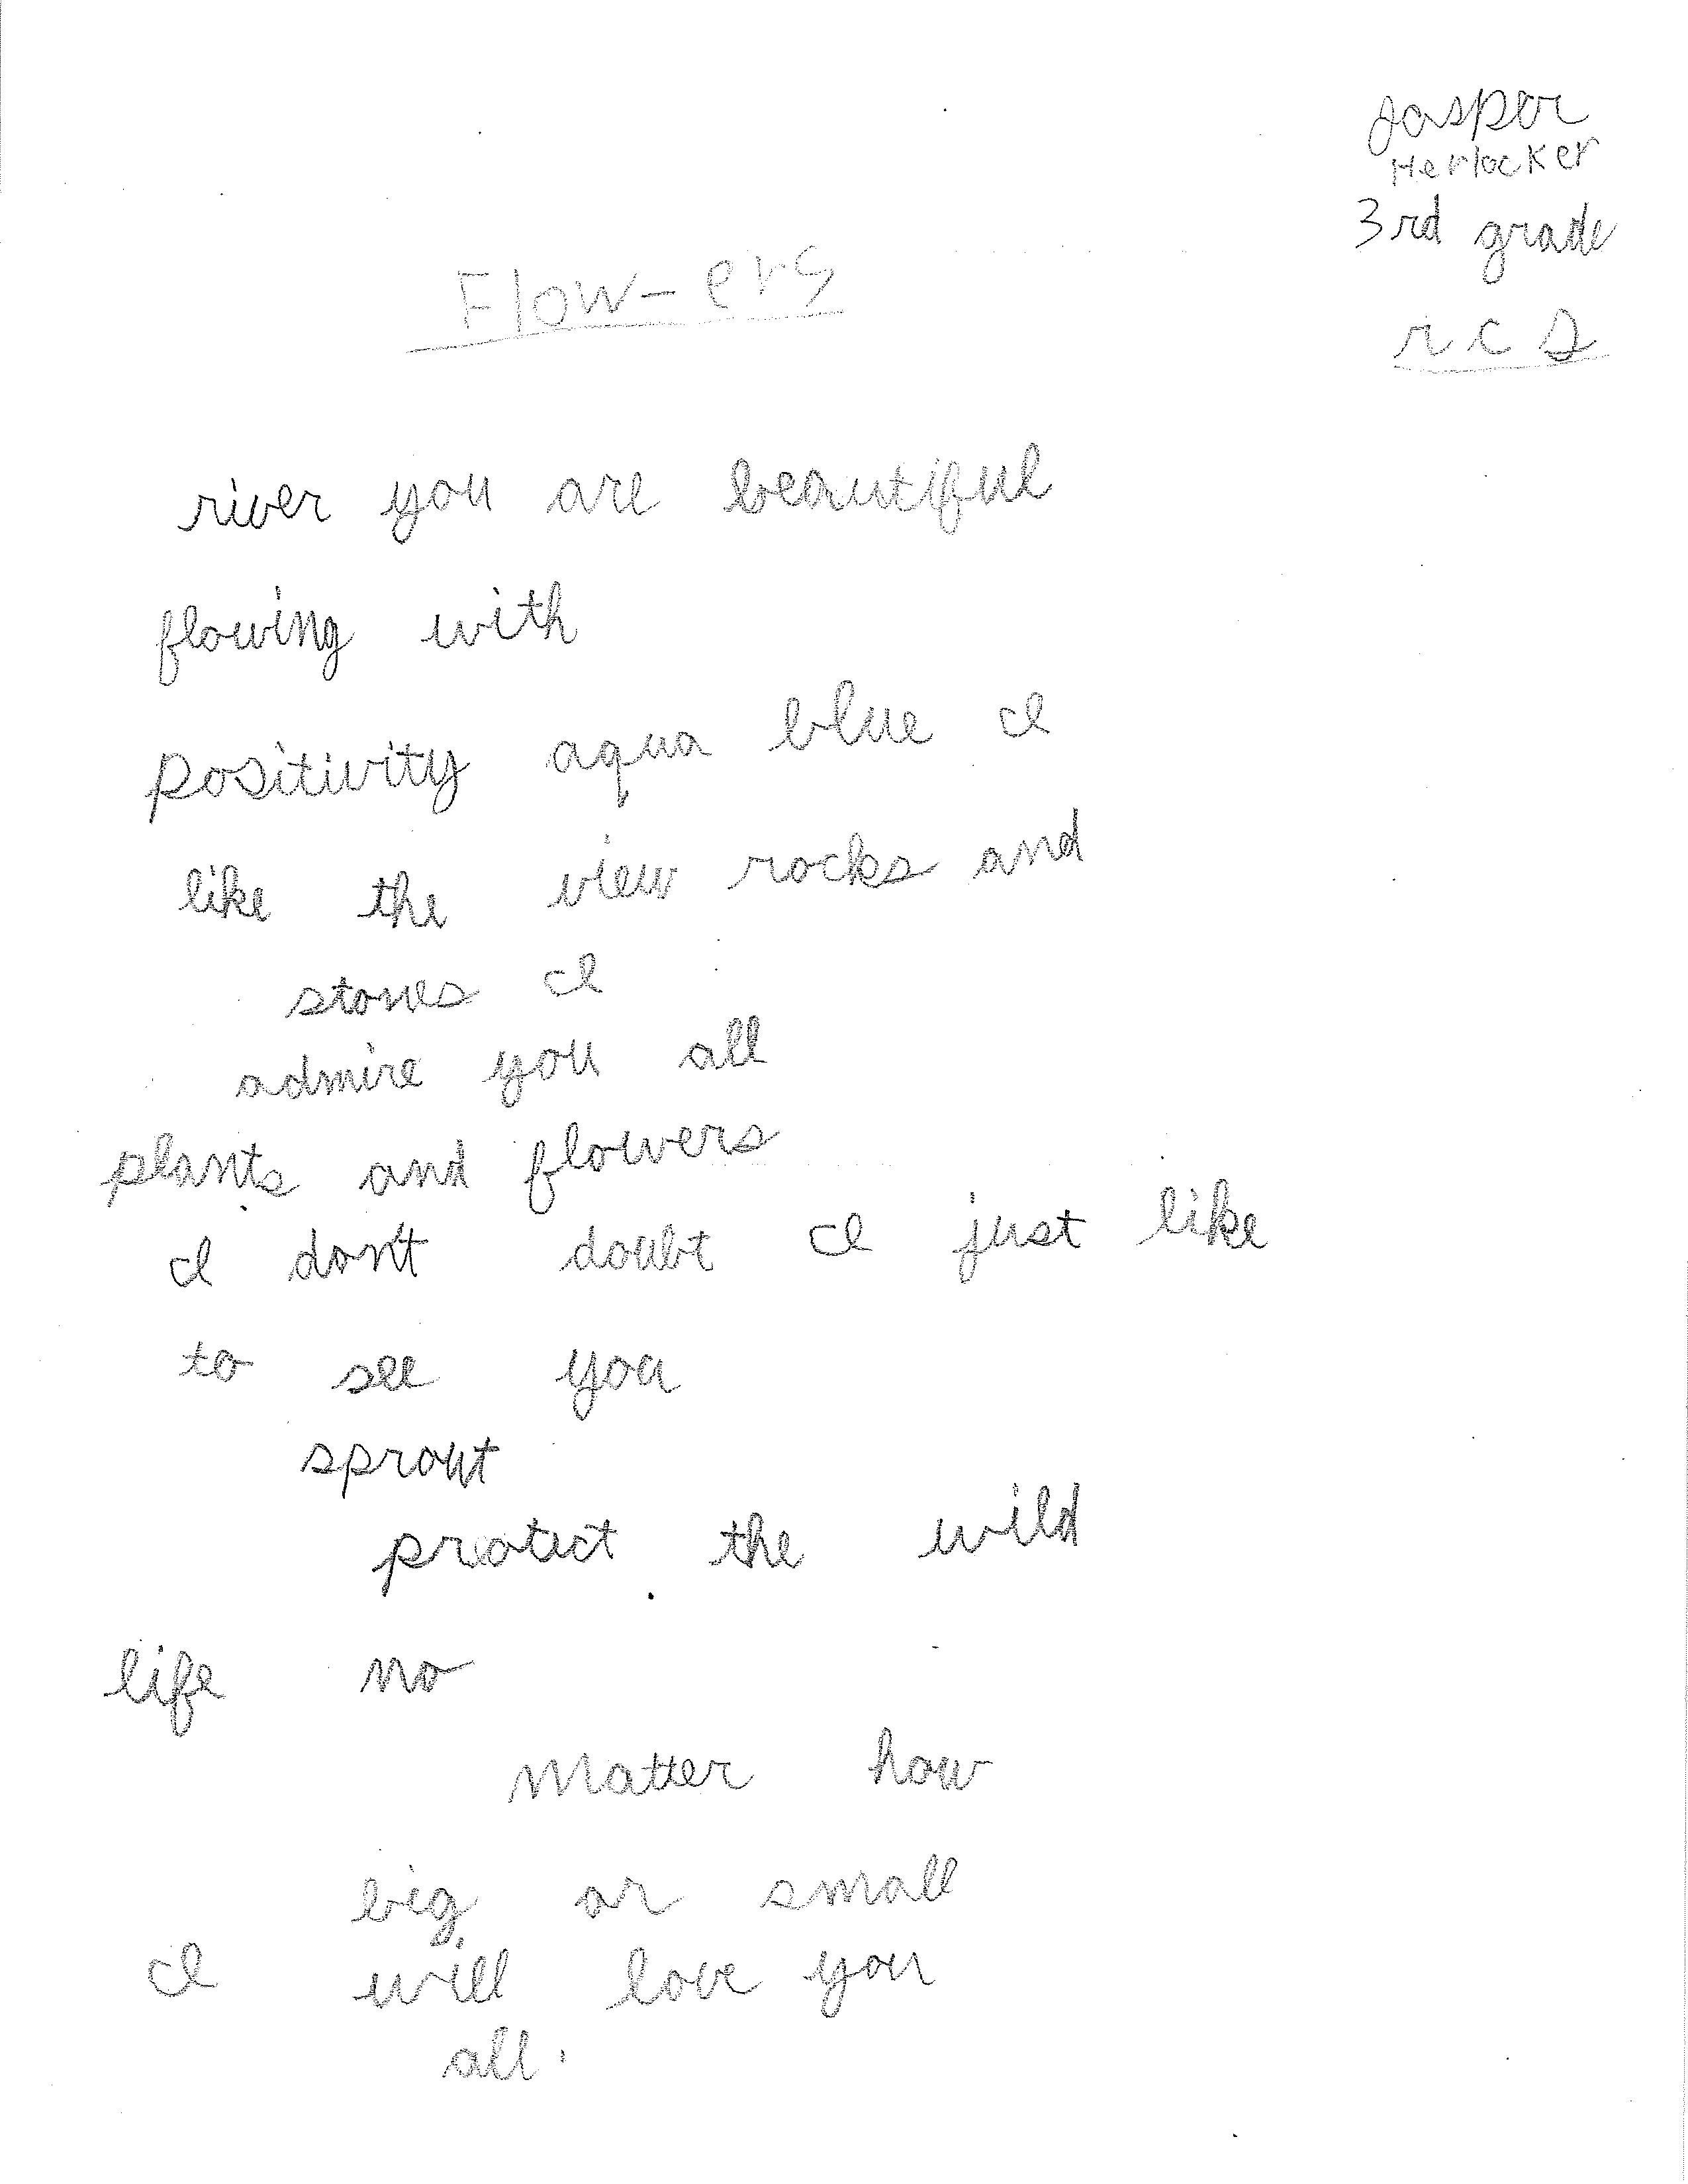 Jasper
Herlocker
3rd grade
r c s
Flow-ers
river you are beautiful
flowing with
positivity aqua blue I
like the view rocks and
stones I
admire you all
plants and flowers
I don't doubt I just like
to see you
sprout
protect the wild
life no
matter how
big or small
I will love you
all.